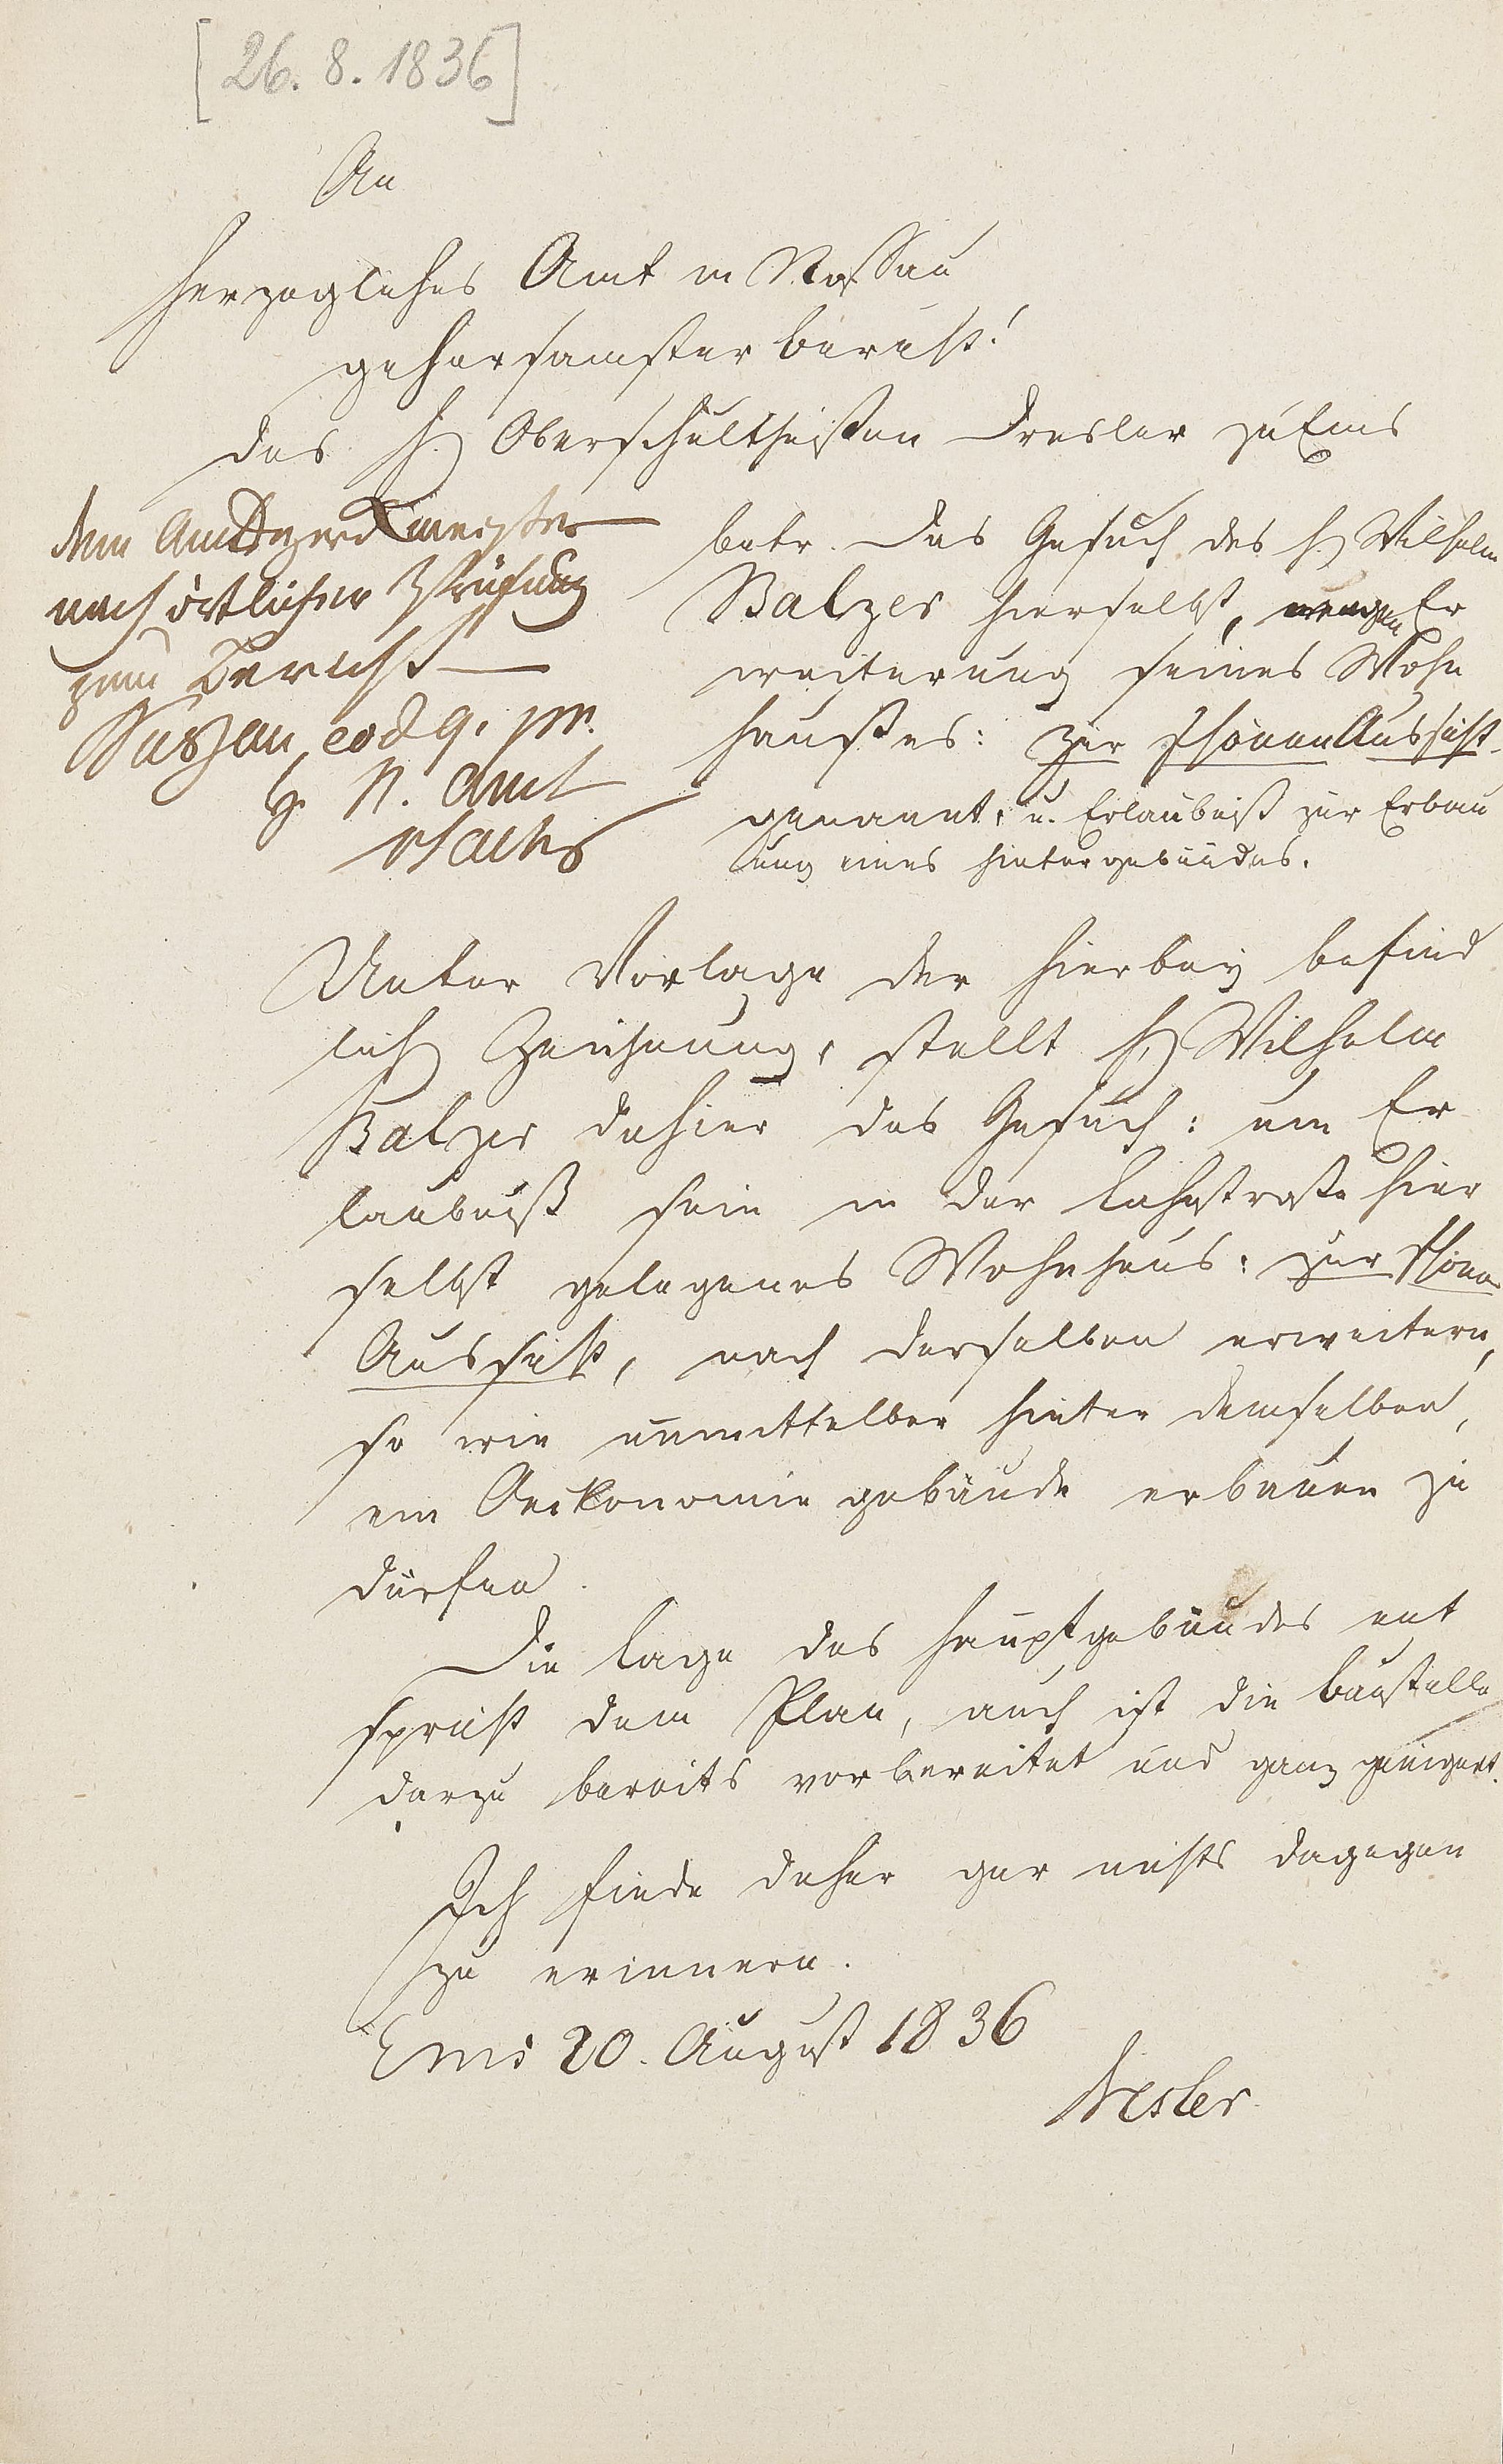 [26. 8. 1836]
An
Herzogliches Amt in Nassau
gehorsamster Bericht!
des H. Oberschultheisen Dresler zu Ems
dem Amtswerkmeister
nach örtlicher Prüfung
zum Bericht
Nassau, eod q. pr.
H. N. Amt
betr. das Gesuch des H. Wilhelm
Balzer hierselbst, wegen Er
weiterung seines Wohn
haußes: zur schönen Aussicht
genannt, u. Erlaubniß zur Erbau
ung eines Hintergebäudes.
Unter Vorlage der hierbey befind
lich Zeichnung, stellt H. Wilhelm
Balzer dahier das Gesuch: um Er
laubniß sein in der Lahnstraße hier
selbst gelegenes Wohnhaus: zur schönen
Aussicht, nach derselben erweitern,
so wie unmittelbar hinter demselben,
ein Oeckonomiegebäude erbauen zu
dürfen.
Die Lage des Hauptgebäudes ent
spricht dem Plan, auch ist die Baustelle
darzu bereits vorbereitet und ganz geeignet.
Ich finde daher gar nichts dagegen
zu erinnern.
Ems 20. August 1836
Dresler